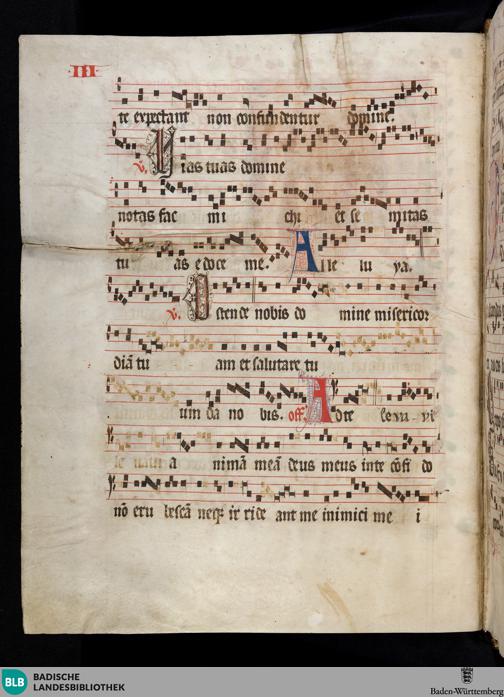 ·III·
te expectant non confundentur domine.
V. Vias tuas domine
notas fac mi chi et se mitas
tu as edoce me. Alle lu ya.
V. Ostende nobis do mine misericor
diā tu am et salutare tu
um da no bis. off. Ad te leva vi
a nimā meā deus meus in te cōfi do
nō eru bescā neq; ir ride ant me inimici me i
BLB BADISCHE
LANDESBIBLIOTHEK
Baden-Württemberg